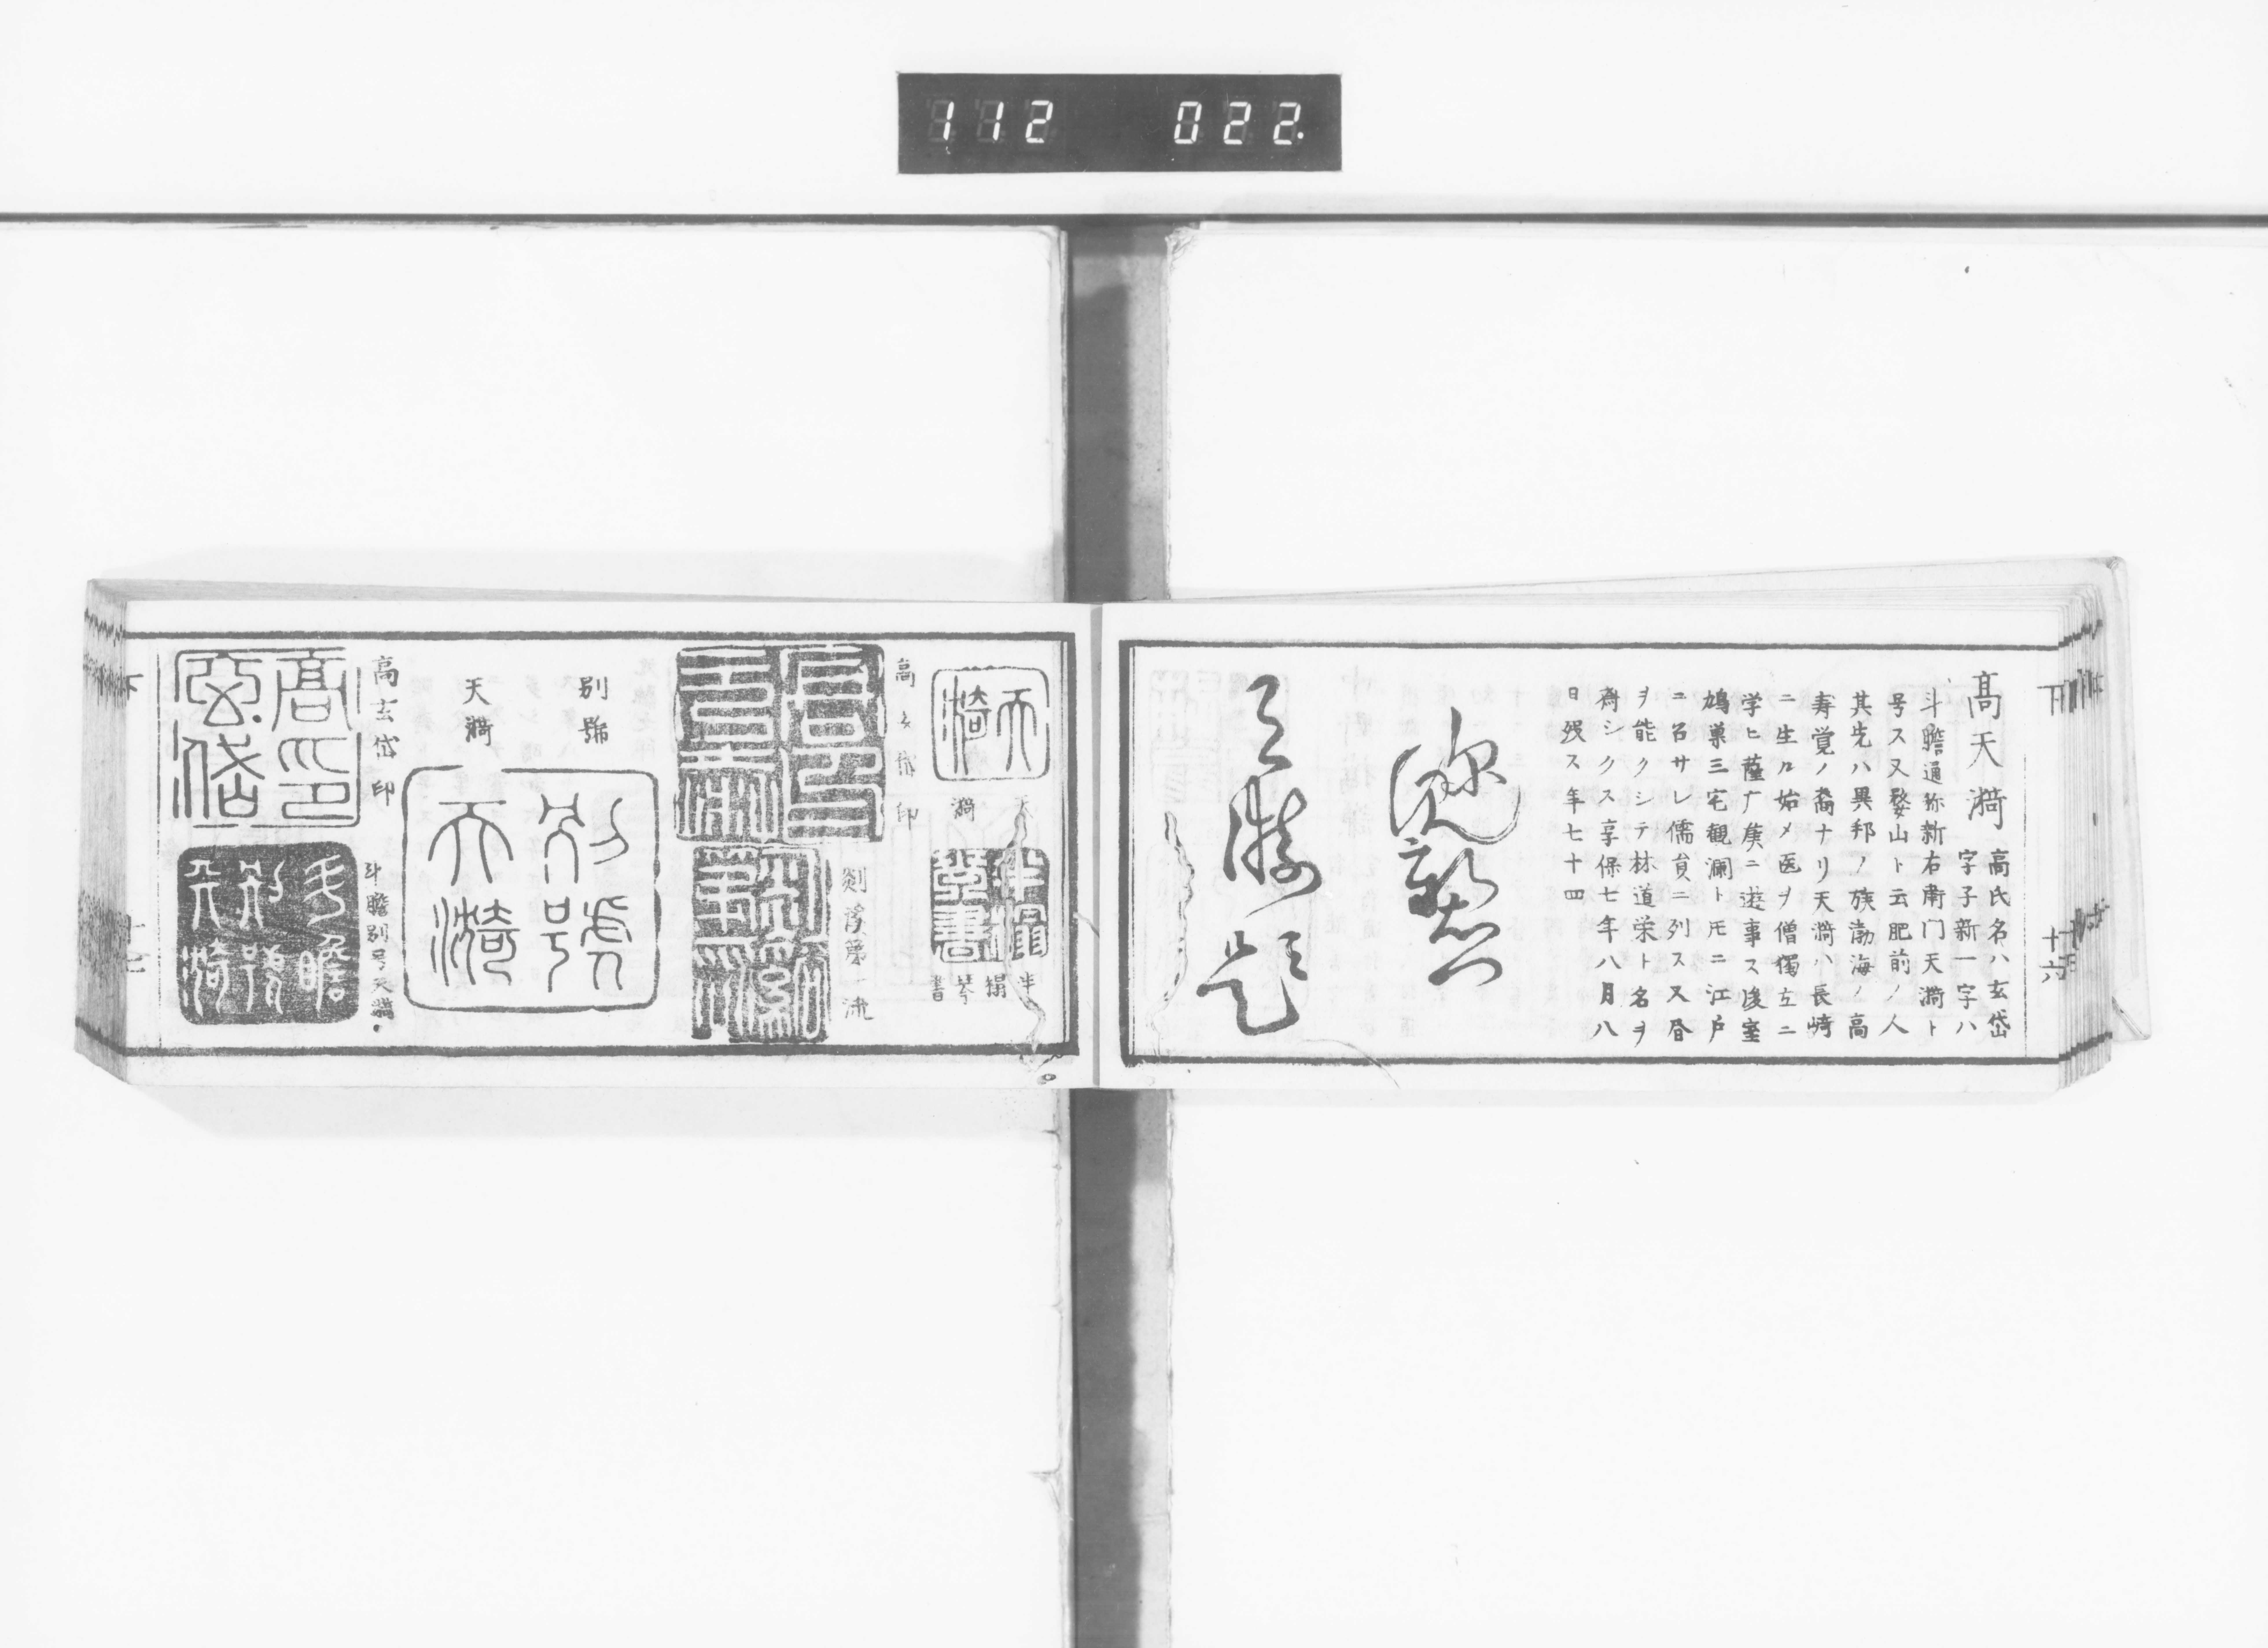 112 022.
下
十六
高天漪 高氏名ハ玄岱
字子新一字ハ
斗瞻通称新右衛门天漪ト
号ス又婺山ト云肥前ノ人
其先ハ異邦ノ族渤海ノ高
寿覚ノ裔ナリ天漪ハ長崎
ニ生ル始メ医ヲ僧獨立ニ
学ヒ薩广矦ニ遊事ス後室
鳩巣三宅観瀾ト𪜈ニ江戸
ニ召サレ儒貟ニ列ス又昏
ヲ能クシテ林道栄ト名ヲ
齊シクス享保七年八月八
日歿ス年七十四
天漪
天漪
半榻琴書
半榻琴書
高玄岱印
高玄岱印
別號
天漪
別號天漪
高玄岱印
高玄岱印
斗瞻別号天漪
斗瞻別号天漪
下
十七